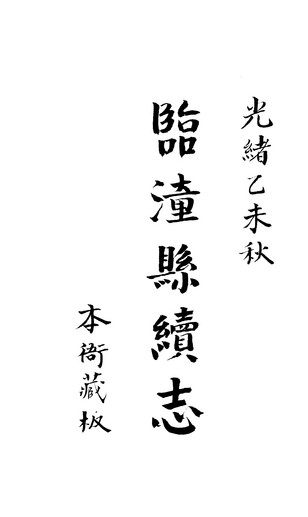 光緒乙未秋
臨潼縣續志
本衙藏板